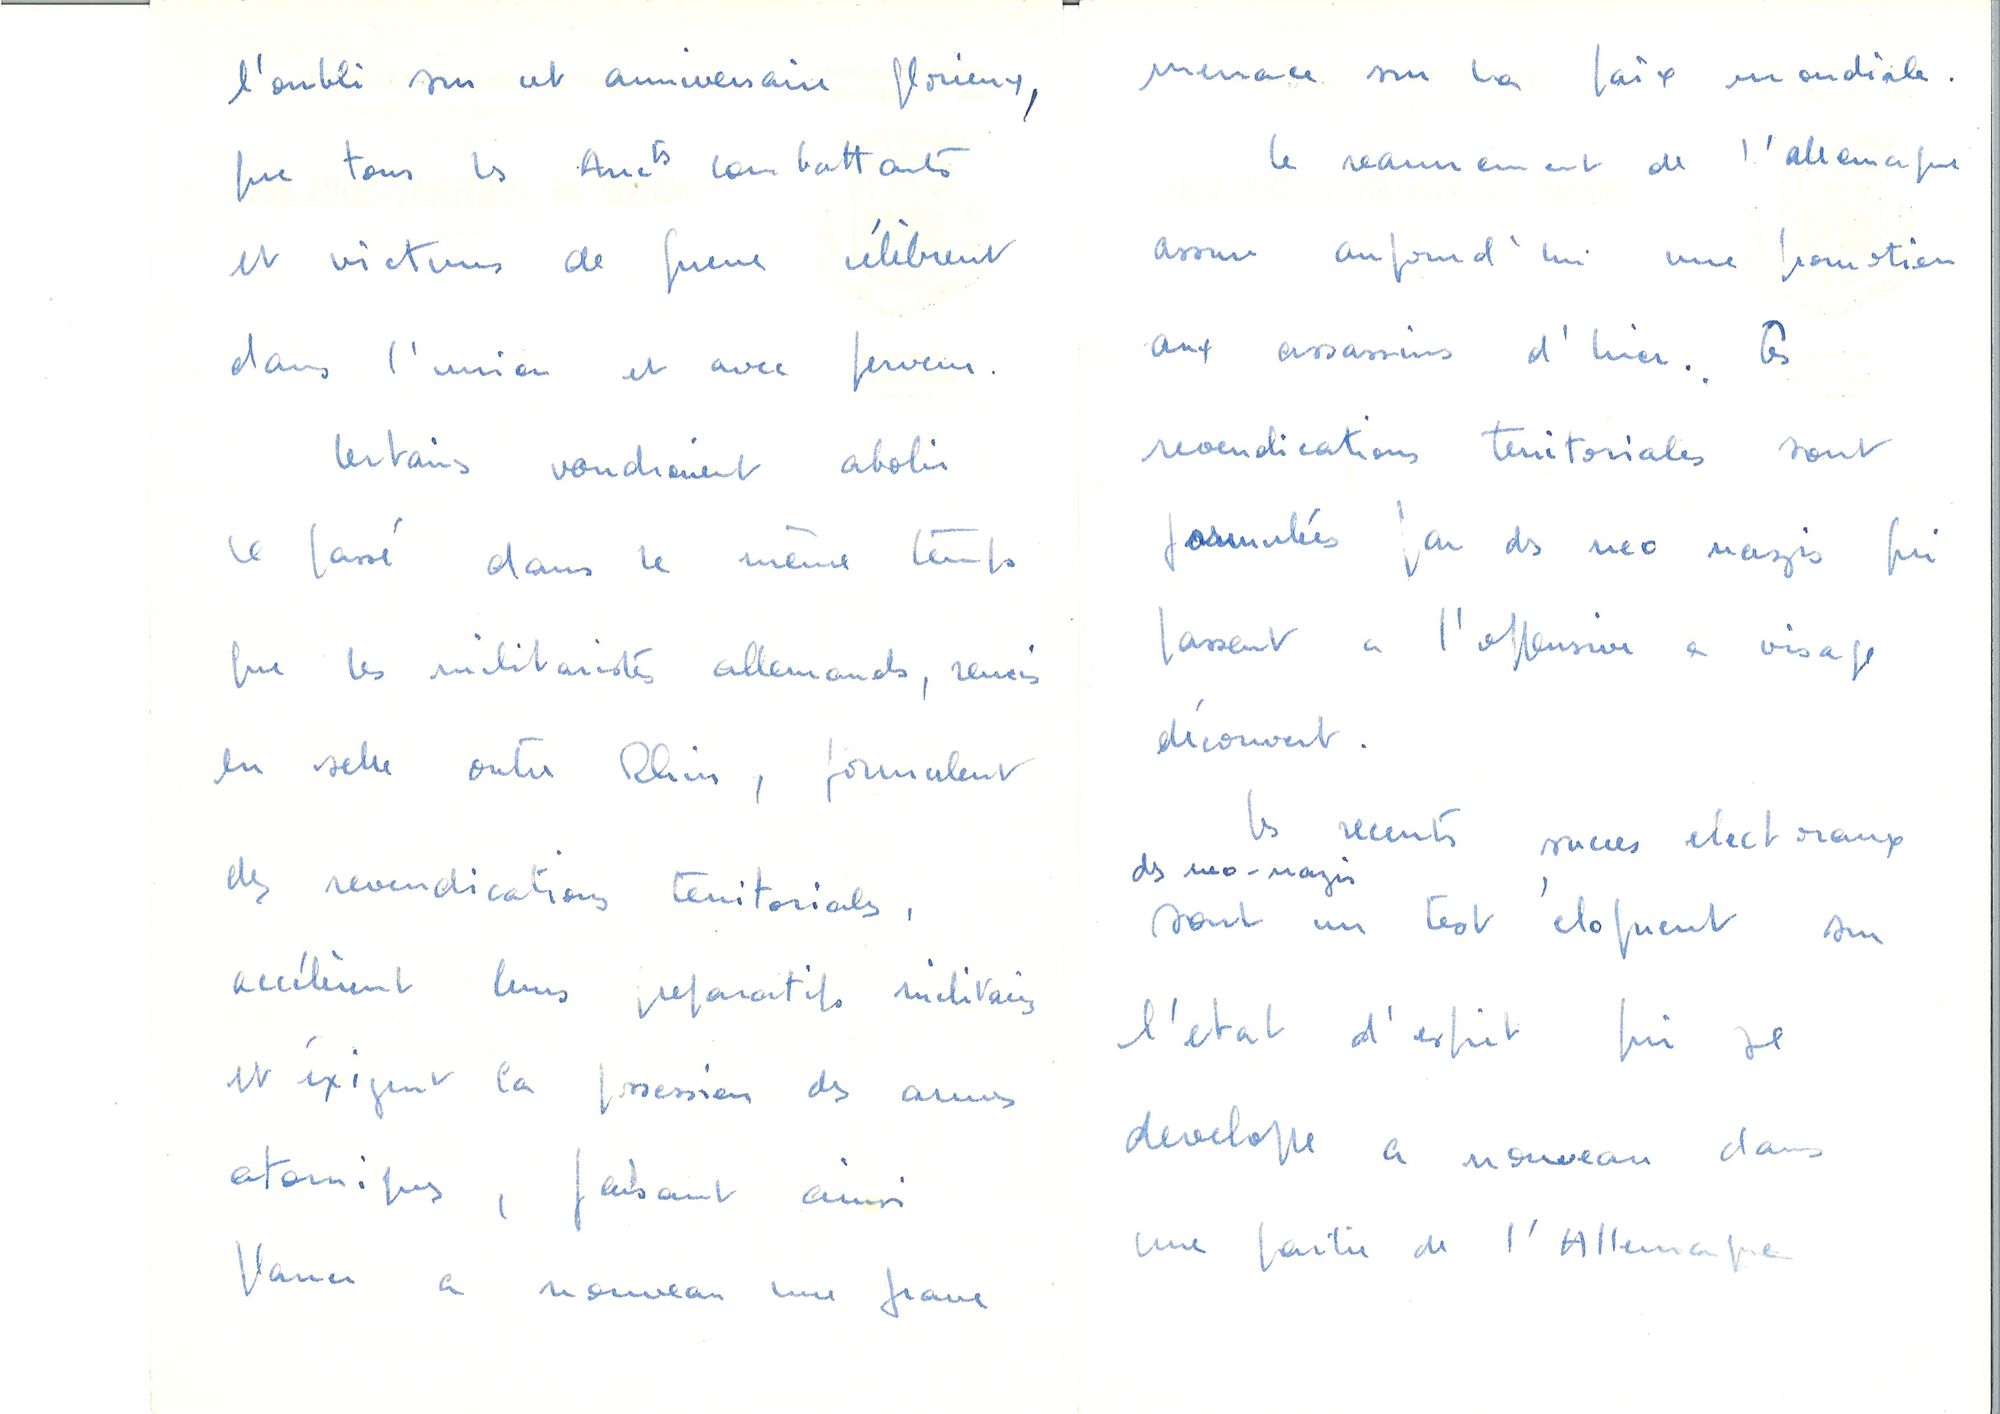 l'oubli sur cet anniversaire glorieux,
que tous les Anc^ts combattants
et victimes de guerre célèbrent
dans l'union et avec ferveur.
Certains voudraient abolir
le passé dans le même temps
que les militaristes allemands, remis
en selle outre Rhin, formulent
des revendications territoriales,
accélèrent leurs preparatifs militaires
et éxigent la possession des armes
atomiques, faisant ainsi
planer a nouveau une grave
menace sur la paix mondiale.
Le rearmement de l'allemagne
assure aujourd'hui une promotion
aux assassins d'hier. Des
revendications territoriales sont
formulées par des neo nazis qui
passent a l'offensive a visage
découvert.
Les recents succes electoraux
des neo-nazis
sont un test éloquent sur
l'etat d'esprit qui se
developpe a nouveau dans
une partie de l'Allemagne